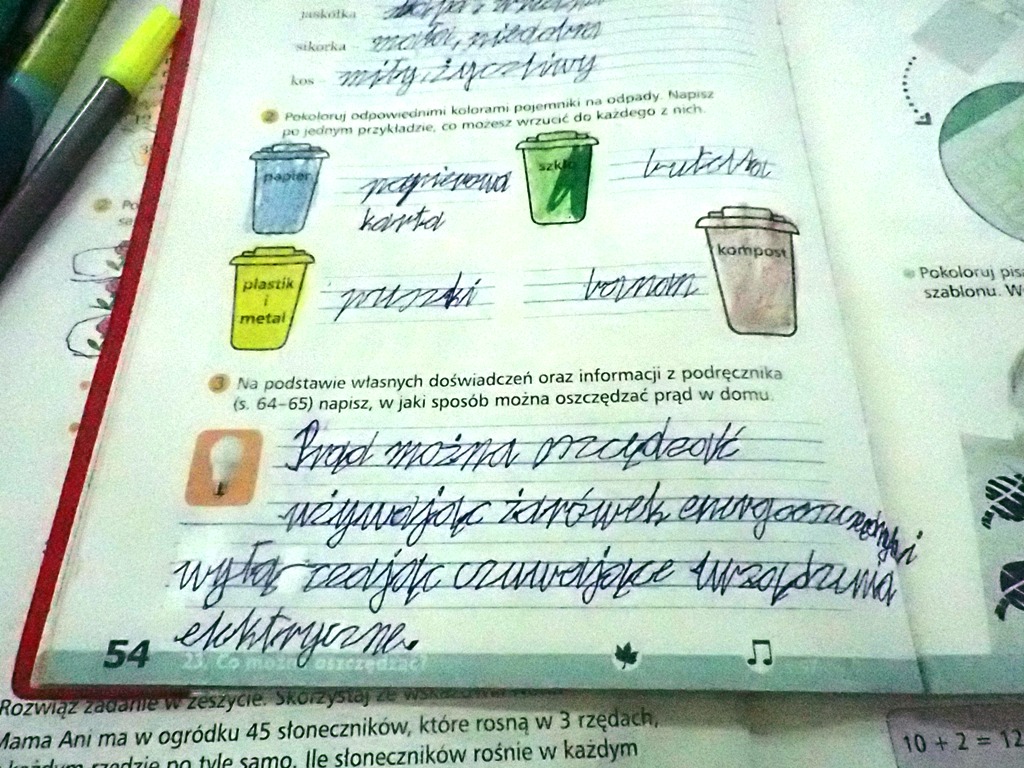 jaskółka
sikorka - mała, niedobra
kos - miły życzliwy
2 Pokoloruj odpowiednimi kolorami pojemniki na odpady. Napisz
po jednym przykładzie, co możesz wrzucić do każdego z nich.
papier papierowa szkło butelka
karta
kompost
plastik puszki banan
i
metal
3 Na podstawie własnych doświadczeń oraz informacji z podręcznika
(s. 64–65) napisz, w jaki sposób można oszczędzać prąd w domu.
Prąd można oszczędzać
używając żarówek energooszczędnych i
wyłączając czuwające urządzenia
elektryczne.
54 23. Co można oszczędzać?
Pokoloruj
szablonu. W
Rozwiąż zadanie w zeszycie. Skorzystaj ze
Mama Ani ma w ogródku 45 słoneczników, które rosną w 3 rzędach,
każdym rzędzie po tyle samo. Ile słoneczników rośnie w każdym
10 + 2 = 12